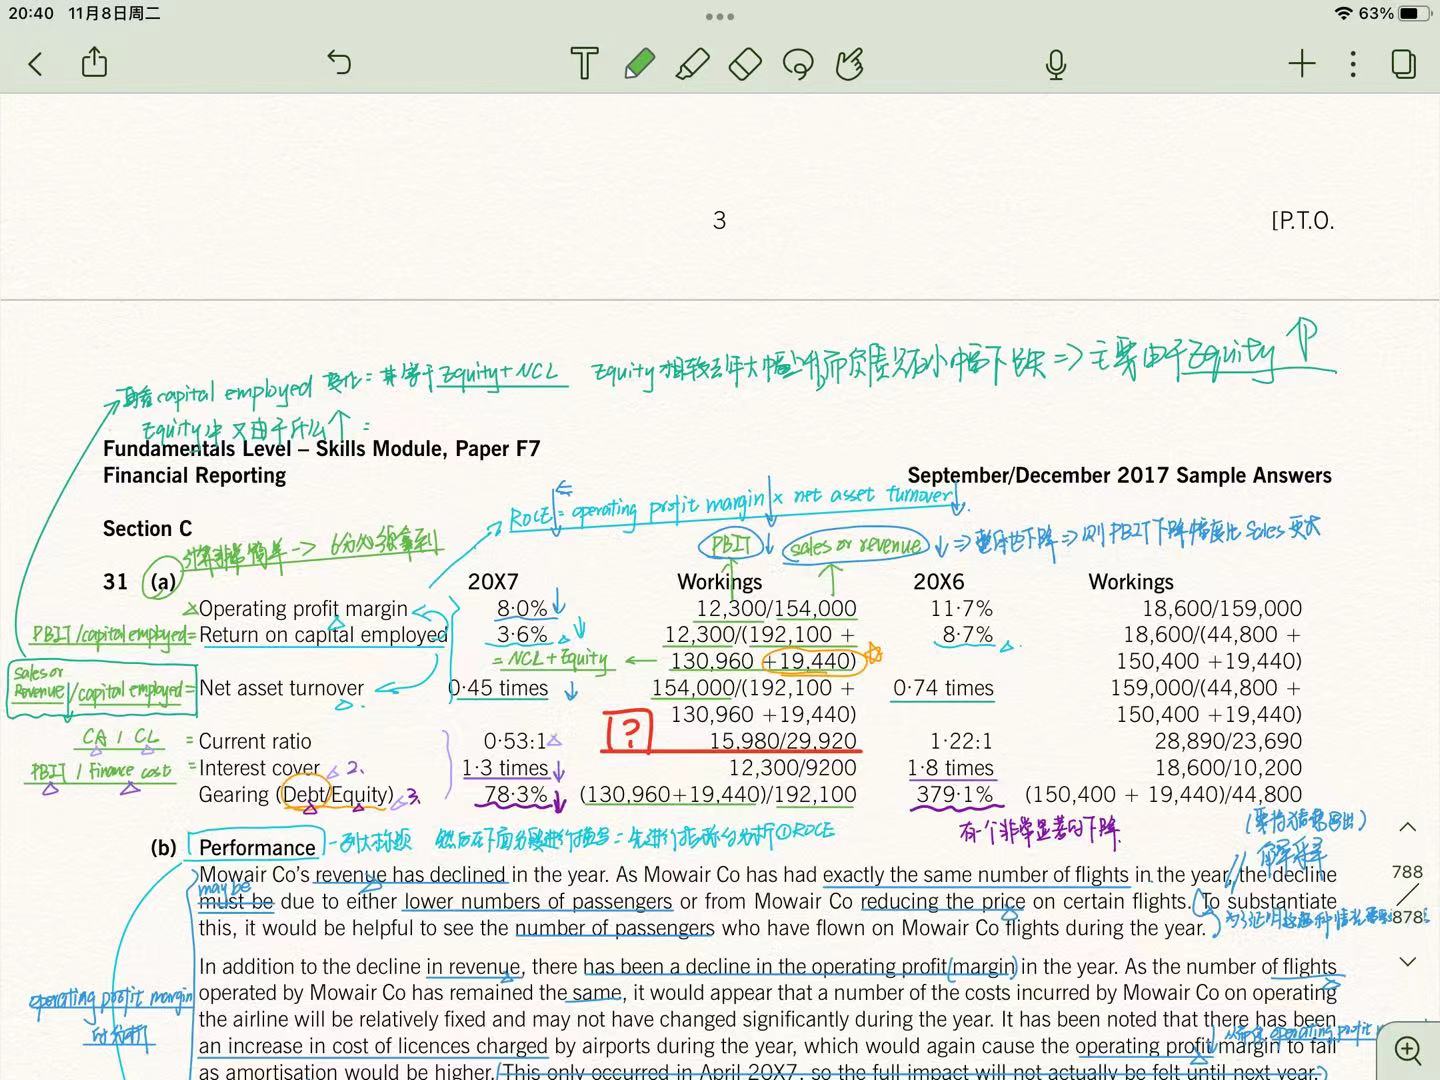 20:40 11月8日周二
63%
3
[P.T.O.
capital employed 变化 = 其等于 Equity + NCL Equity 相较去年大幅上升而负债只有小幅下跌 => 主要由于 Equity ↑
Equity中又由于什么↑ =
Fundamentals Level – Skills Module, Paper F7
Financial Reporting
September/December 2017 Sample Answers
ROCE = operating profit margin × net asset turnover
Section C
计算非常简单 -> 6分必须拿到
PBIT ↓ sales or revenue ↓ => PBIT下降幅度比Sales更大
31 (a) 20X7 Workings 20X6 Workings
Operating profit margin 8·0% ↓ 12,300/154,000 11·7% 18,600/159,000
PBIT/capital employed = Return on capital employed 3·6% ↓ 12,300/(192,100 + 8·7% 18,600/(44,800 +
= NCL + Equity ← 130,960 +19,440) 150,400 +19,440)
sales or
Revenue /capital employed = Net asset turnover 0·45 times ↓ 154,000/(192,100 + 0·74 times 159,000/(44,800 +
130,960 +19,440) 150,400 +19,440)
?
CA / CL = Current ratio 0·53:1 15,980/29,920 1·22:1 28,890/23,690
PBIT / finance cost = Interest cover 2、 1·3 times ↓ 12,300/9200 1·8 times 18,600/10,200
Gearing (Debt/Equity) 3、 78·3% ↓ (130,960+19,440)/192,100 379·1% (150,400 + 19,440)/44,800
有个非常显著的下降
(b) Performance
解释
788
878
Mowair Co’s revenue has declined in the year. As Mowair Co has had exactly the same number of flights in the year, the decline
may be
must be due to either lower numbers of passengers or from Mowair Co reducing the price on certain flights. To substantiate
this, it would be helpful to see the number of passengers who have flown on Mowair Co flights during the year.
In addition to the decline in revenue, there has been a decline in the operating profit (margin) in the year. As the number of flights
operating profit margin
的分析
operated by Mowair Co has remained the same, it would appear that a number of the costs incurred by Mowair Co on operating
the airline will be relatively fixed and may not have changed significantly during the year. It has been noted that there has been
an increase in cost of licences charged by airports during the year, which would again cause the operating profit margin to fall
as amortisation would be higher. (This only occurred in April 20X7, so the full impact will not actually be felt until next year.)